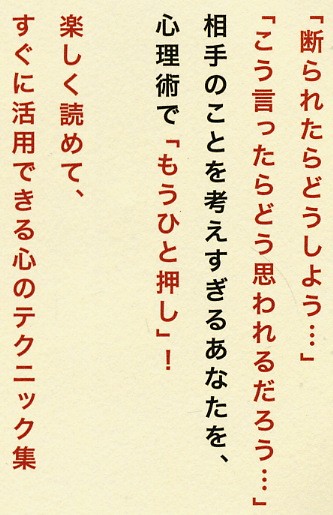 「断られたらどうしよう…」
「こう言ったらどう思われるだろう…」
相手のことを考えすぎるあなたを、
心理術で「もうひと押し」！
楽しく読めて、
すぐに活用できる心のテクニック集